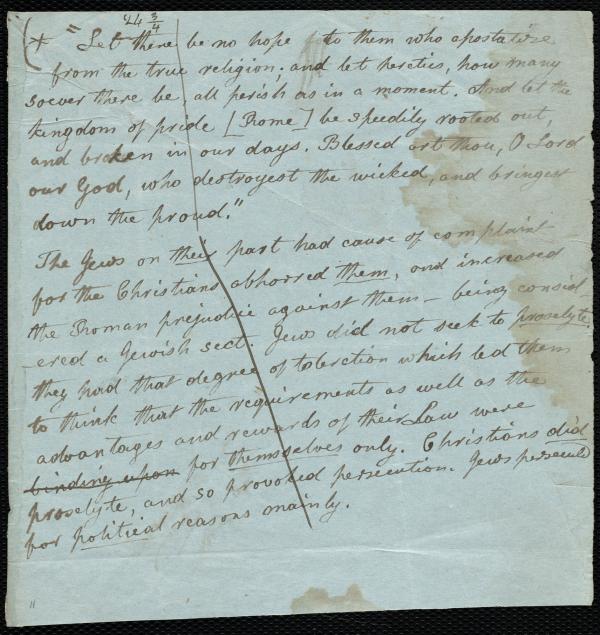 24 3/4
(+ "Let there be no hope to them who apostatize
from the true religion; and let heretics, how many
soever there be, all perish as in a moment. And let the
kingdom of pride [Rome] be speedily rooted out,
and broken in our days. Blessed art thou, O Lord
our God, who destroyest the wicked, and bringest
down the proud."
The Jews on their part had cause of complaint
for the Christians abhorred them, and increased
the Roman prejudice against them - being consid-
-ered a Jewish sect. Jews did not seek to proselyte.
they had that degree of toleration which led them
to think that the requirements as well as the
advantages and rewards of their Law were
binding upon for themselves only. Christians did
proselyte, and so provoked persecution. Jews persecuted
for political reasons mainly.
11